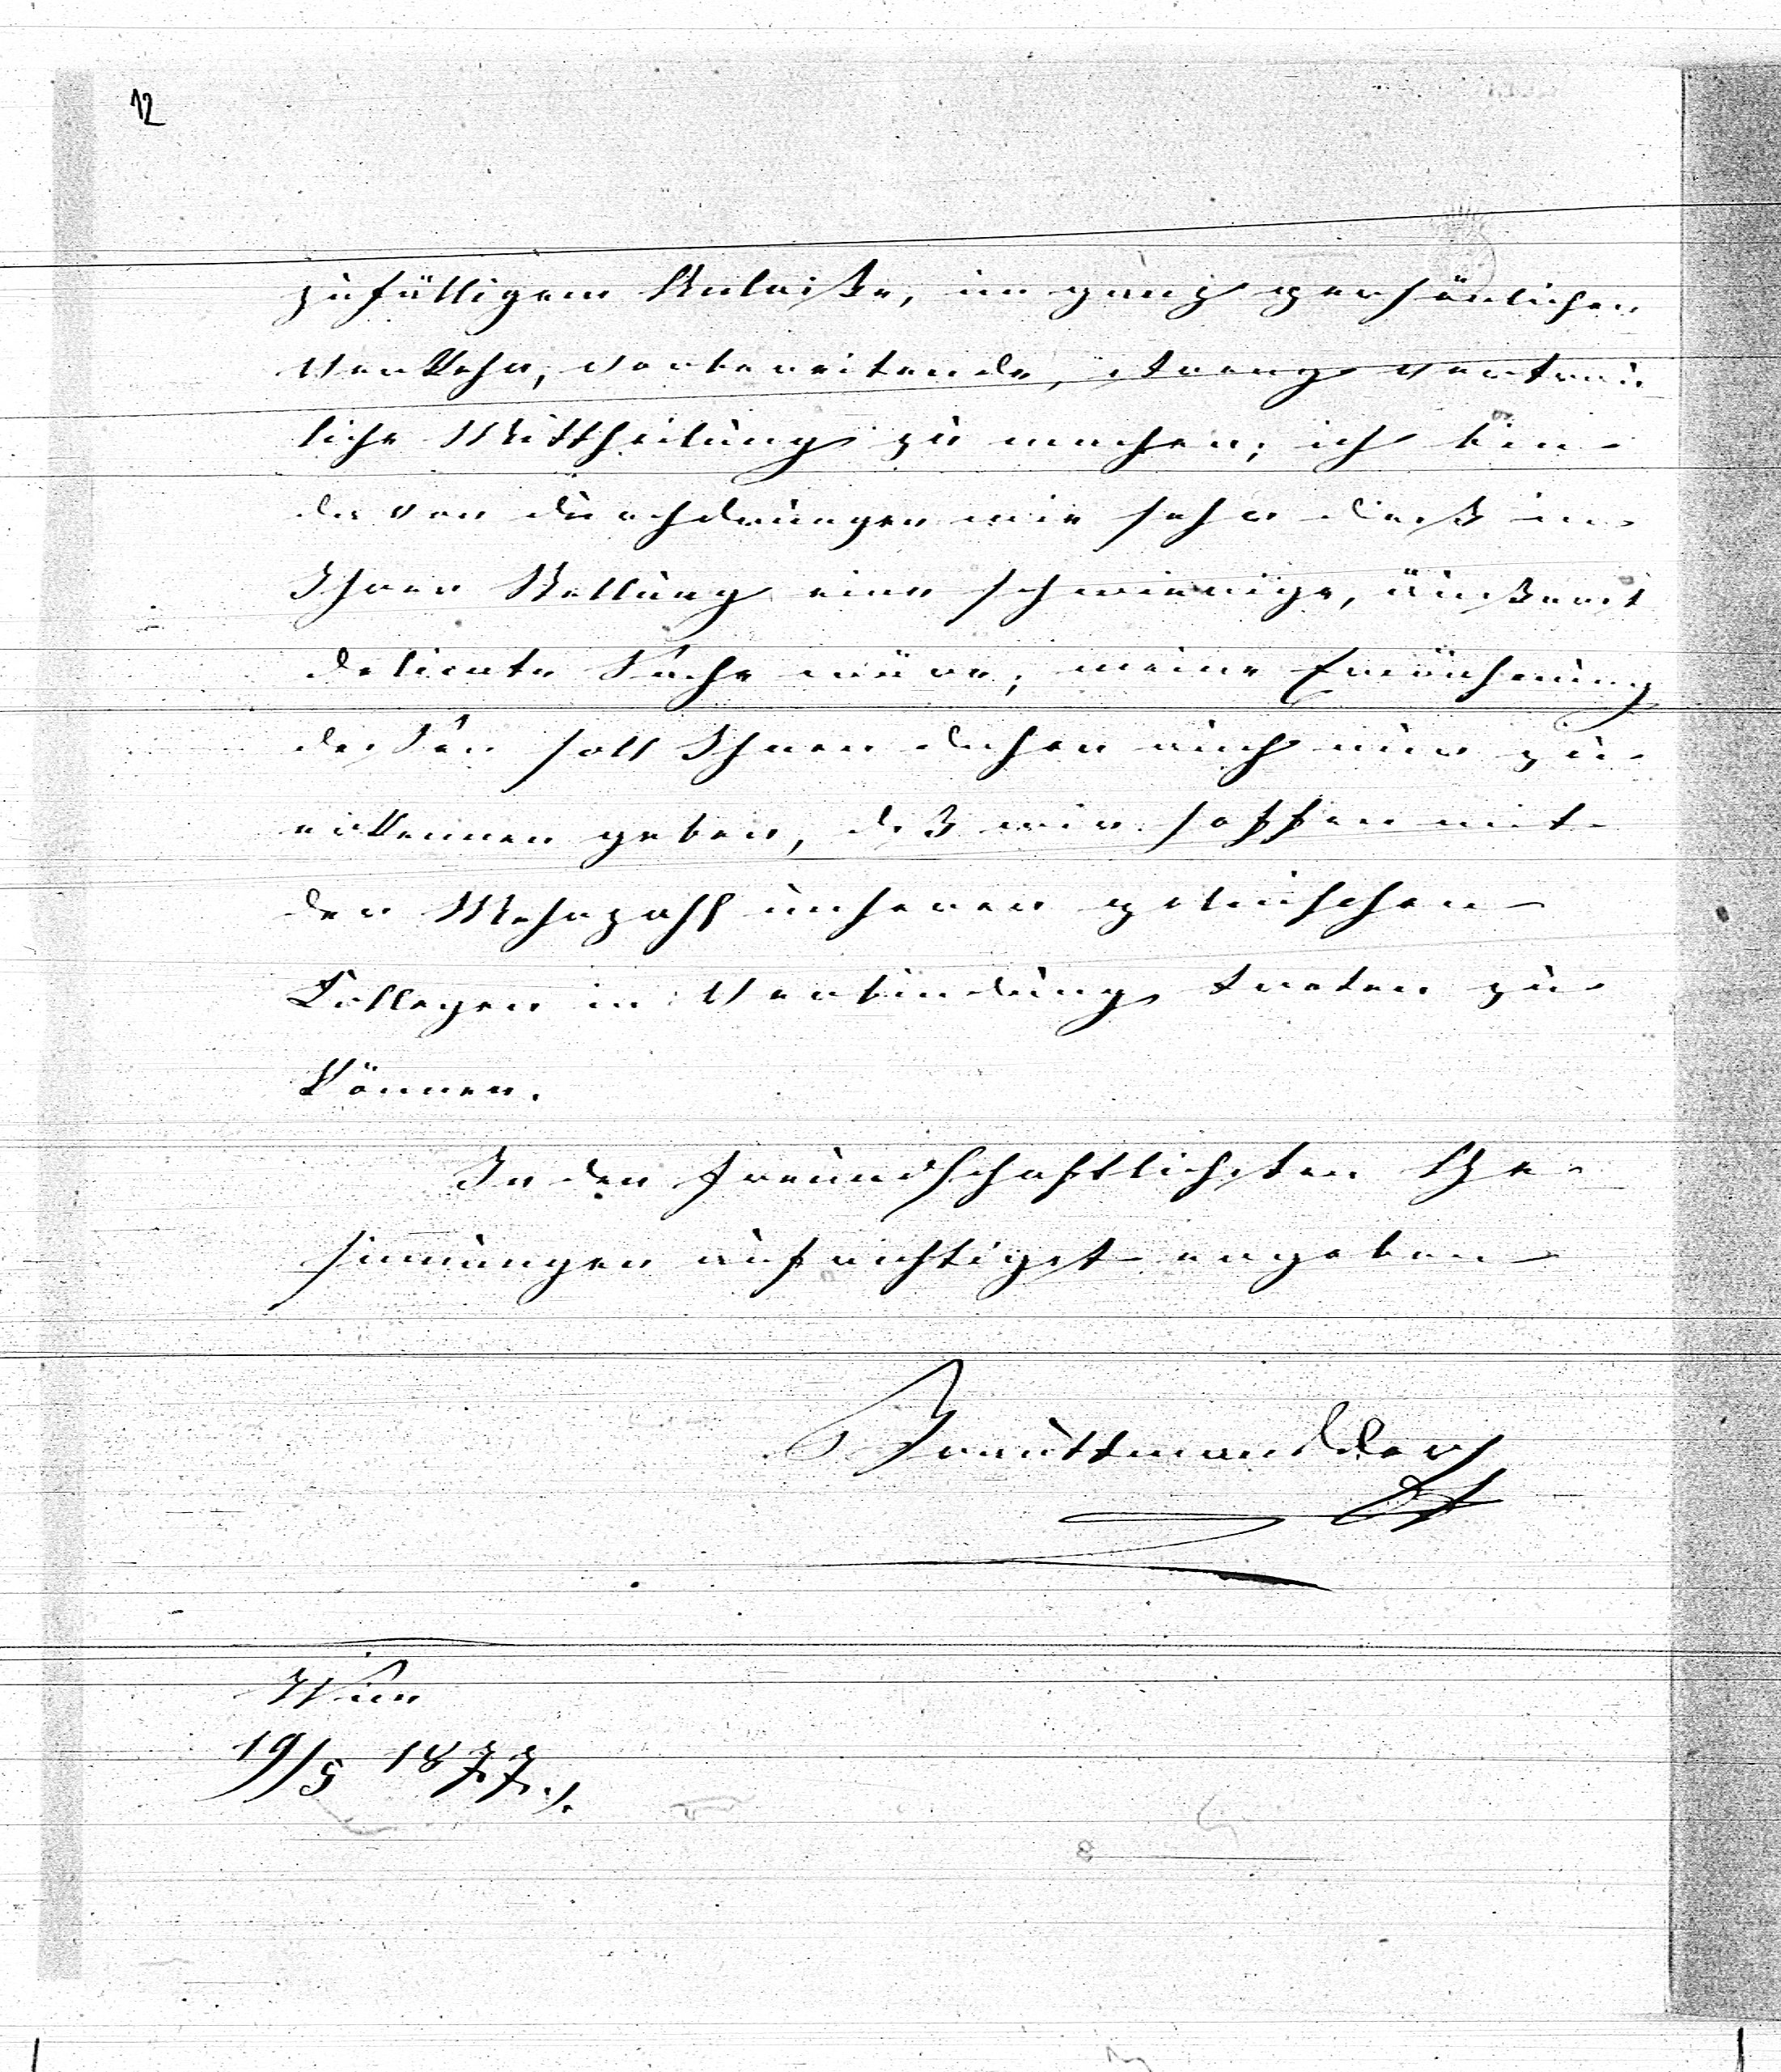 12
zufälligem Anlaiße, im ganz persönlichen
Verkehr, vorbereitende, streng vertrau
liche Mittheilung zu machen; ich bin
davon durchdrungen wie sehr dieß in
Ihrer Stellung eine schwierige, äußerst
delicate Sache wäre; meine Erwähnung
dessen soll Ihnen daher auch nur zu
erkennen geben, daß wir hoffen mit
der Mehrzahl unserer polnischen
Collegen in Verbindung treten zu
können.
In den freundschaftlichsten Ge-
sinnungen aufrichtigst ergeben
Wien
19/5 1877./.